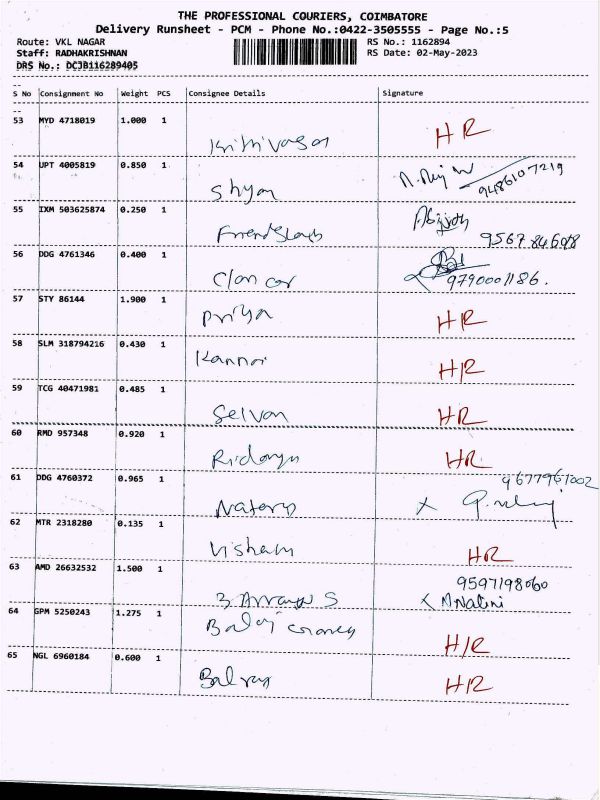 THE PROFESSIONAL COURIERS, COIMBATORE
Delivery Runsheet - PCM - Phone No.:0422-3505555 - Page No.:5
Route: VKL NAGAR RS No.: 1162894
Staff: RADHAKRISHNAN RS Date: 02-May-2023
DRS No.: DCJB116289405
S No Consignment No Weight PCS Consignee Details Signature
53 MYD 4718019 1.000 1 HR
54 UPT 4005819 0.850 1 Shyam 9486107219
55 IXM 503625874 0.250 1
56 DDG 4761346 0.400 1 9790001186.
57 STY 86144 1.900 1 Priya HR
58 SLM 318794216 0.430 1 Kannan HR
59 TCG 40471981 0.485 1 Selvan HR
60 RMD 957348 0.920 1 HR
61 DDG 4760372 0.965 1 9677961002
62 MTR 2318280 0.135 1 HR
63 AMD 26632532 1.500 1 9597198060
64 GPM 5250243 1.275 1 Balaji HR
65 NGL 6960184 0.600 1 HR